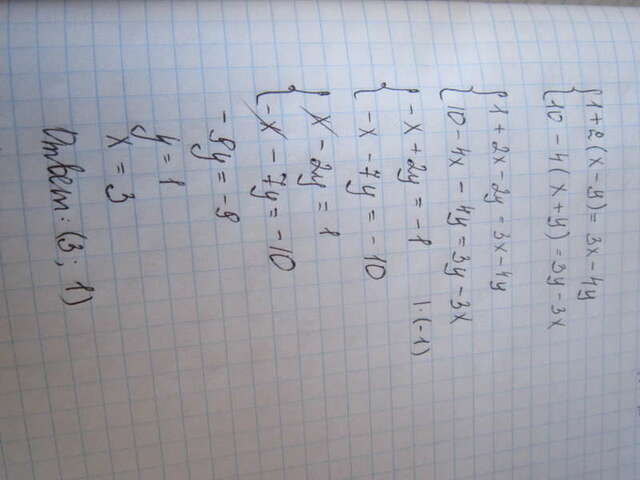 1 + 2(x - y) = 3x - 4y
10 - 4(x + y) = 3y - 3x
1 + 2x - 2y = 3x - 4y
10 - 4x - 4y = 3y - 3x
-x + 2y = -1 |·(-1)
-x - 7y = -10
x - 2y = 1
-x - 7y = -10
-9y = -9
y = 1
x = 3
Ответ: (3; 1)